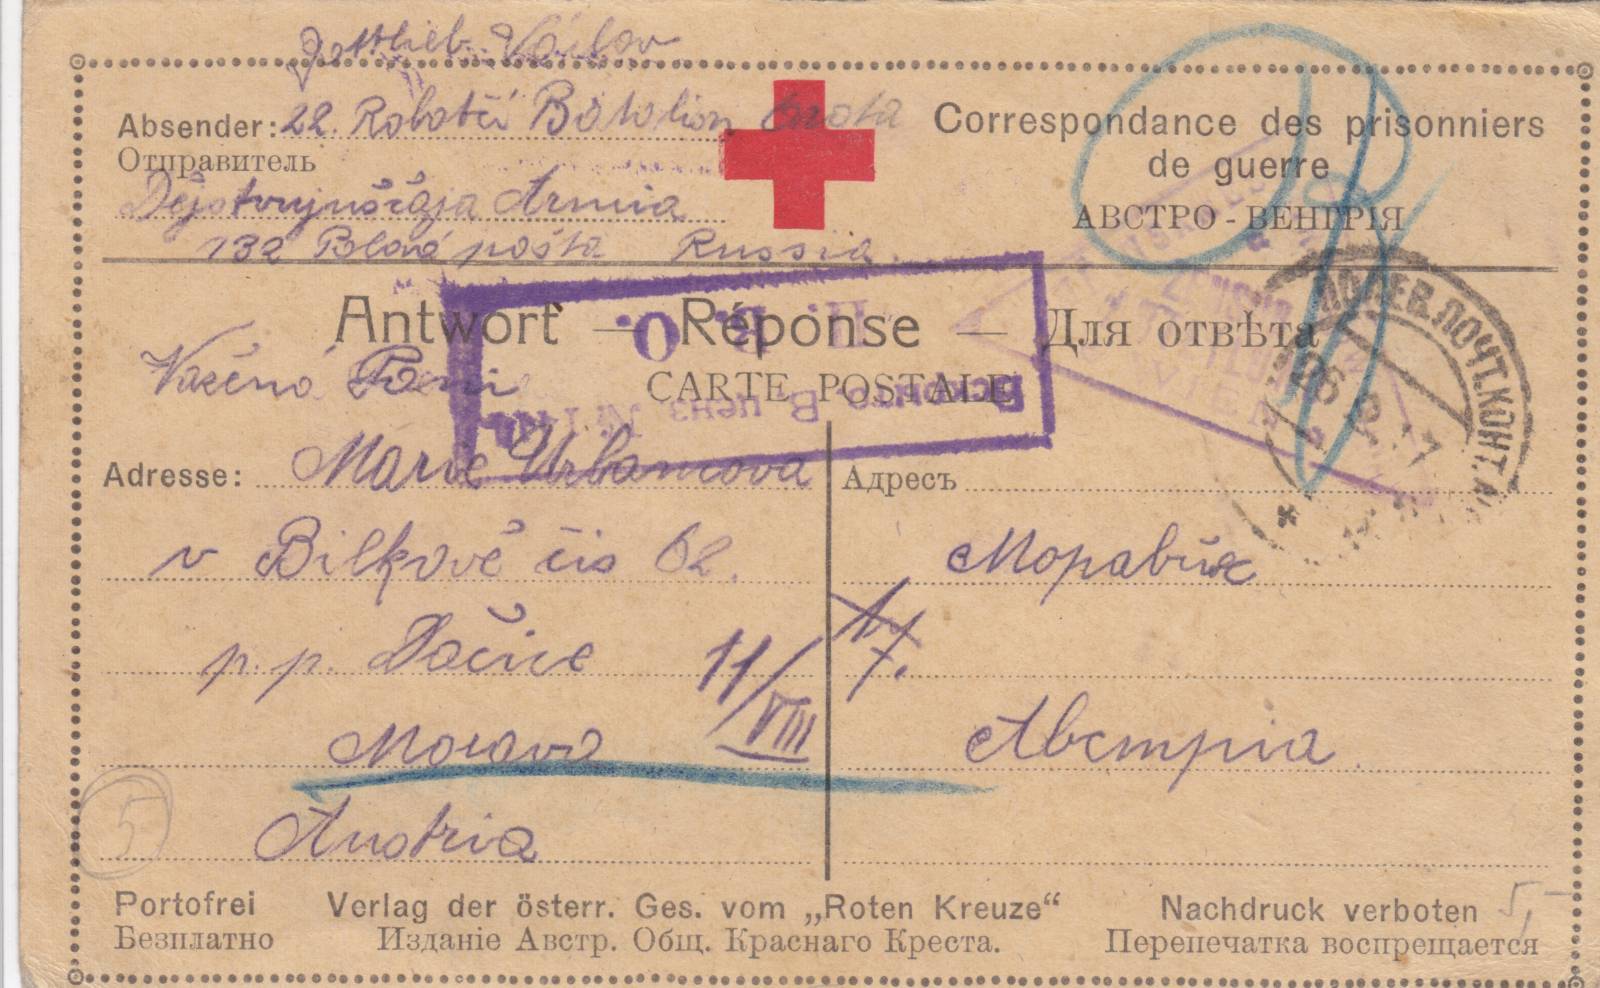 Gottlieb Václav
Absender: 22. Robotči Batalion
Отправитель
Armia
132 Polová pošta Russia.
Correspondance des prisonniers
de guerre
АВСТРО - ВЕНГРІЯ
Antwort — Réponse — Для отвѣта
CARTE POSTALE
ПОЛЕВ. ПОЧТ. КОНТ.
26
Vážená
Adresse: Marie Urbancova
Адресъ
v Bilkově čis 62.
Моравия
p. p. Dačice
11/VIII
17.
Morava
Австрия
Austria
5
Portofrei Verlag der österr. Ges. vom „Roten Kreuze“ Nachdruck verboten 5,-
Безплатно Изданіе Австр. Общ. Краснаго Креста. Перепечатка воспрещается